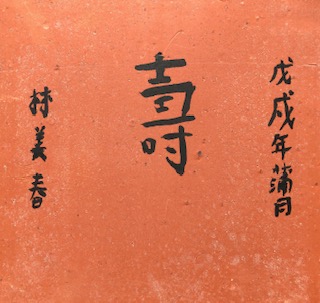 戊戌年蒲月
壽
林美春